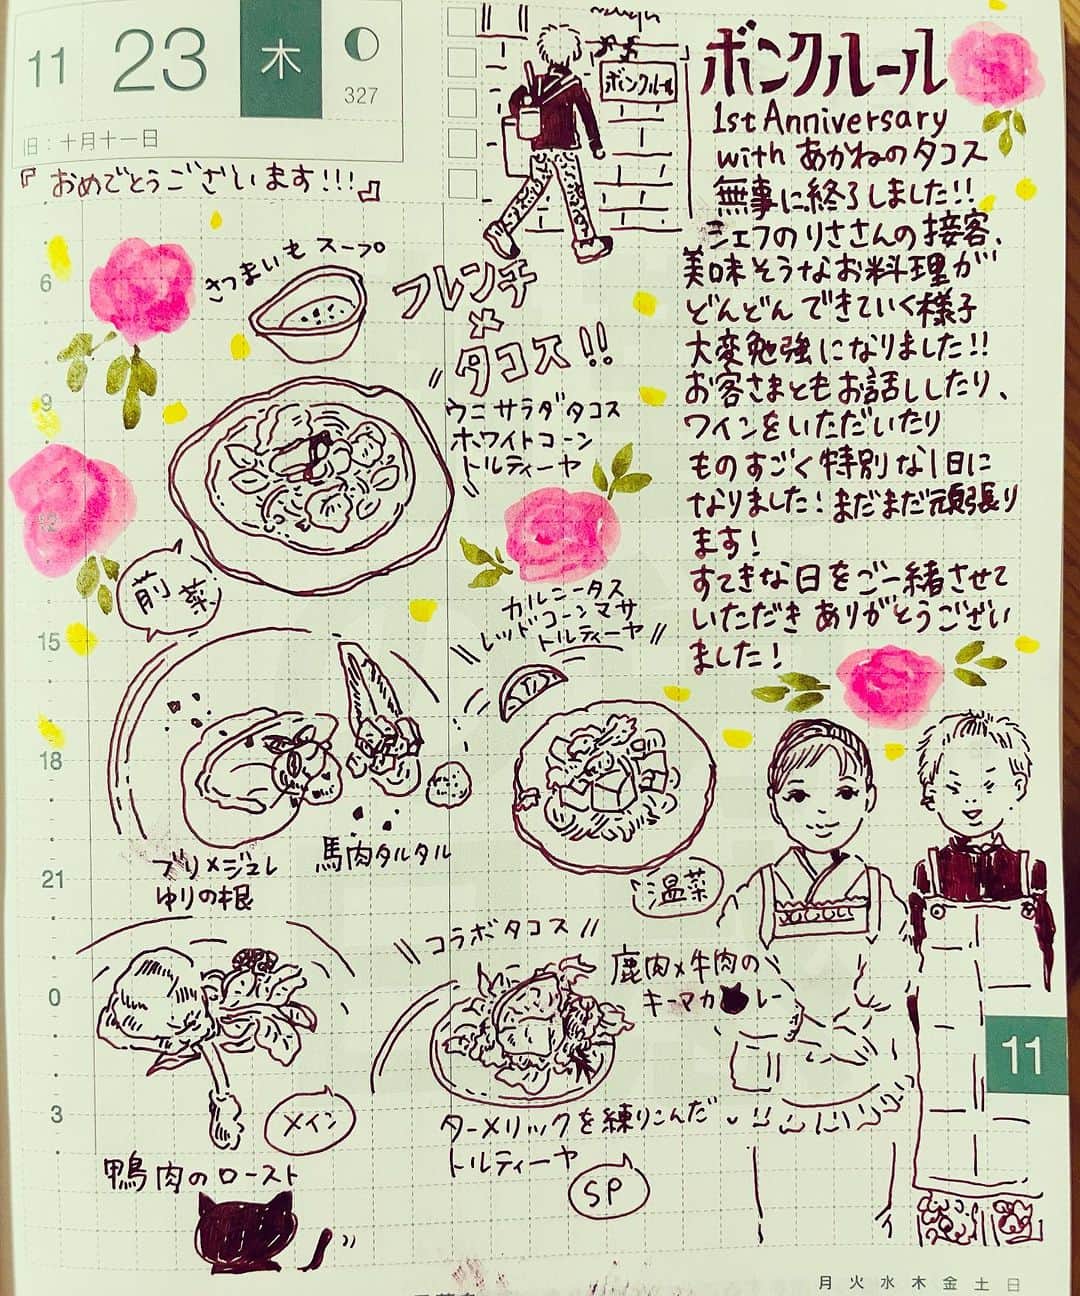 11
23
木
327
旧：十月十一日
『おめでとうございます!!!』
ボンクルール
ボンクルール
1st Anniversary
with あかねのタコス
無事に終了しました!!
シェフのりささんの接客、
美味そうなお料理が
どんどんできていく様子
大変勉強になりました!!
お客さまともお話ししたり、
ワインをいただいたり
ものすごく特別な1日に
なりました！まだまだ頑張り
ます！
すてきな日をご一緒させて
いただきありがとうござい
ました！
さつまいもスープ
フレンチ
×
タコス!!
ウニサラダタコス
ホワイトコーン
トルティーヤ
前菜
カルニータス
レッドコーンマサ
トルティーヤ
温菜
ブリ×ジュレ
ゆりの根
馬肉タルタル
コラボタコス
鹿肉×牛肉の
キーマカレー
ターメリックを練りこんだ
トルティーヤ
SP
メイン
鴨肉のロースト
6
9
12
15
18
21
0
3
11
月 火 水 木 金 土 日